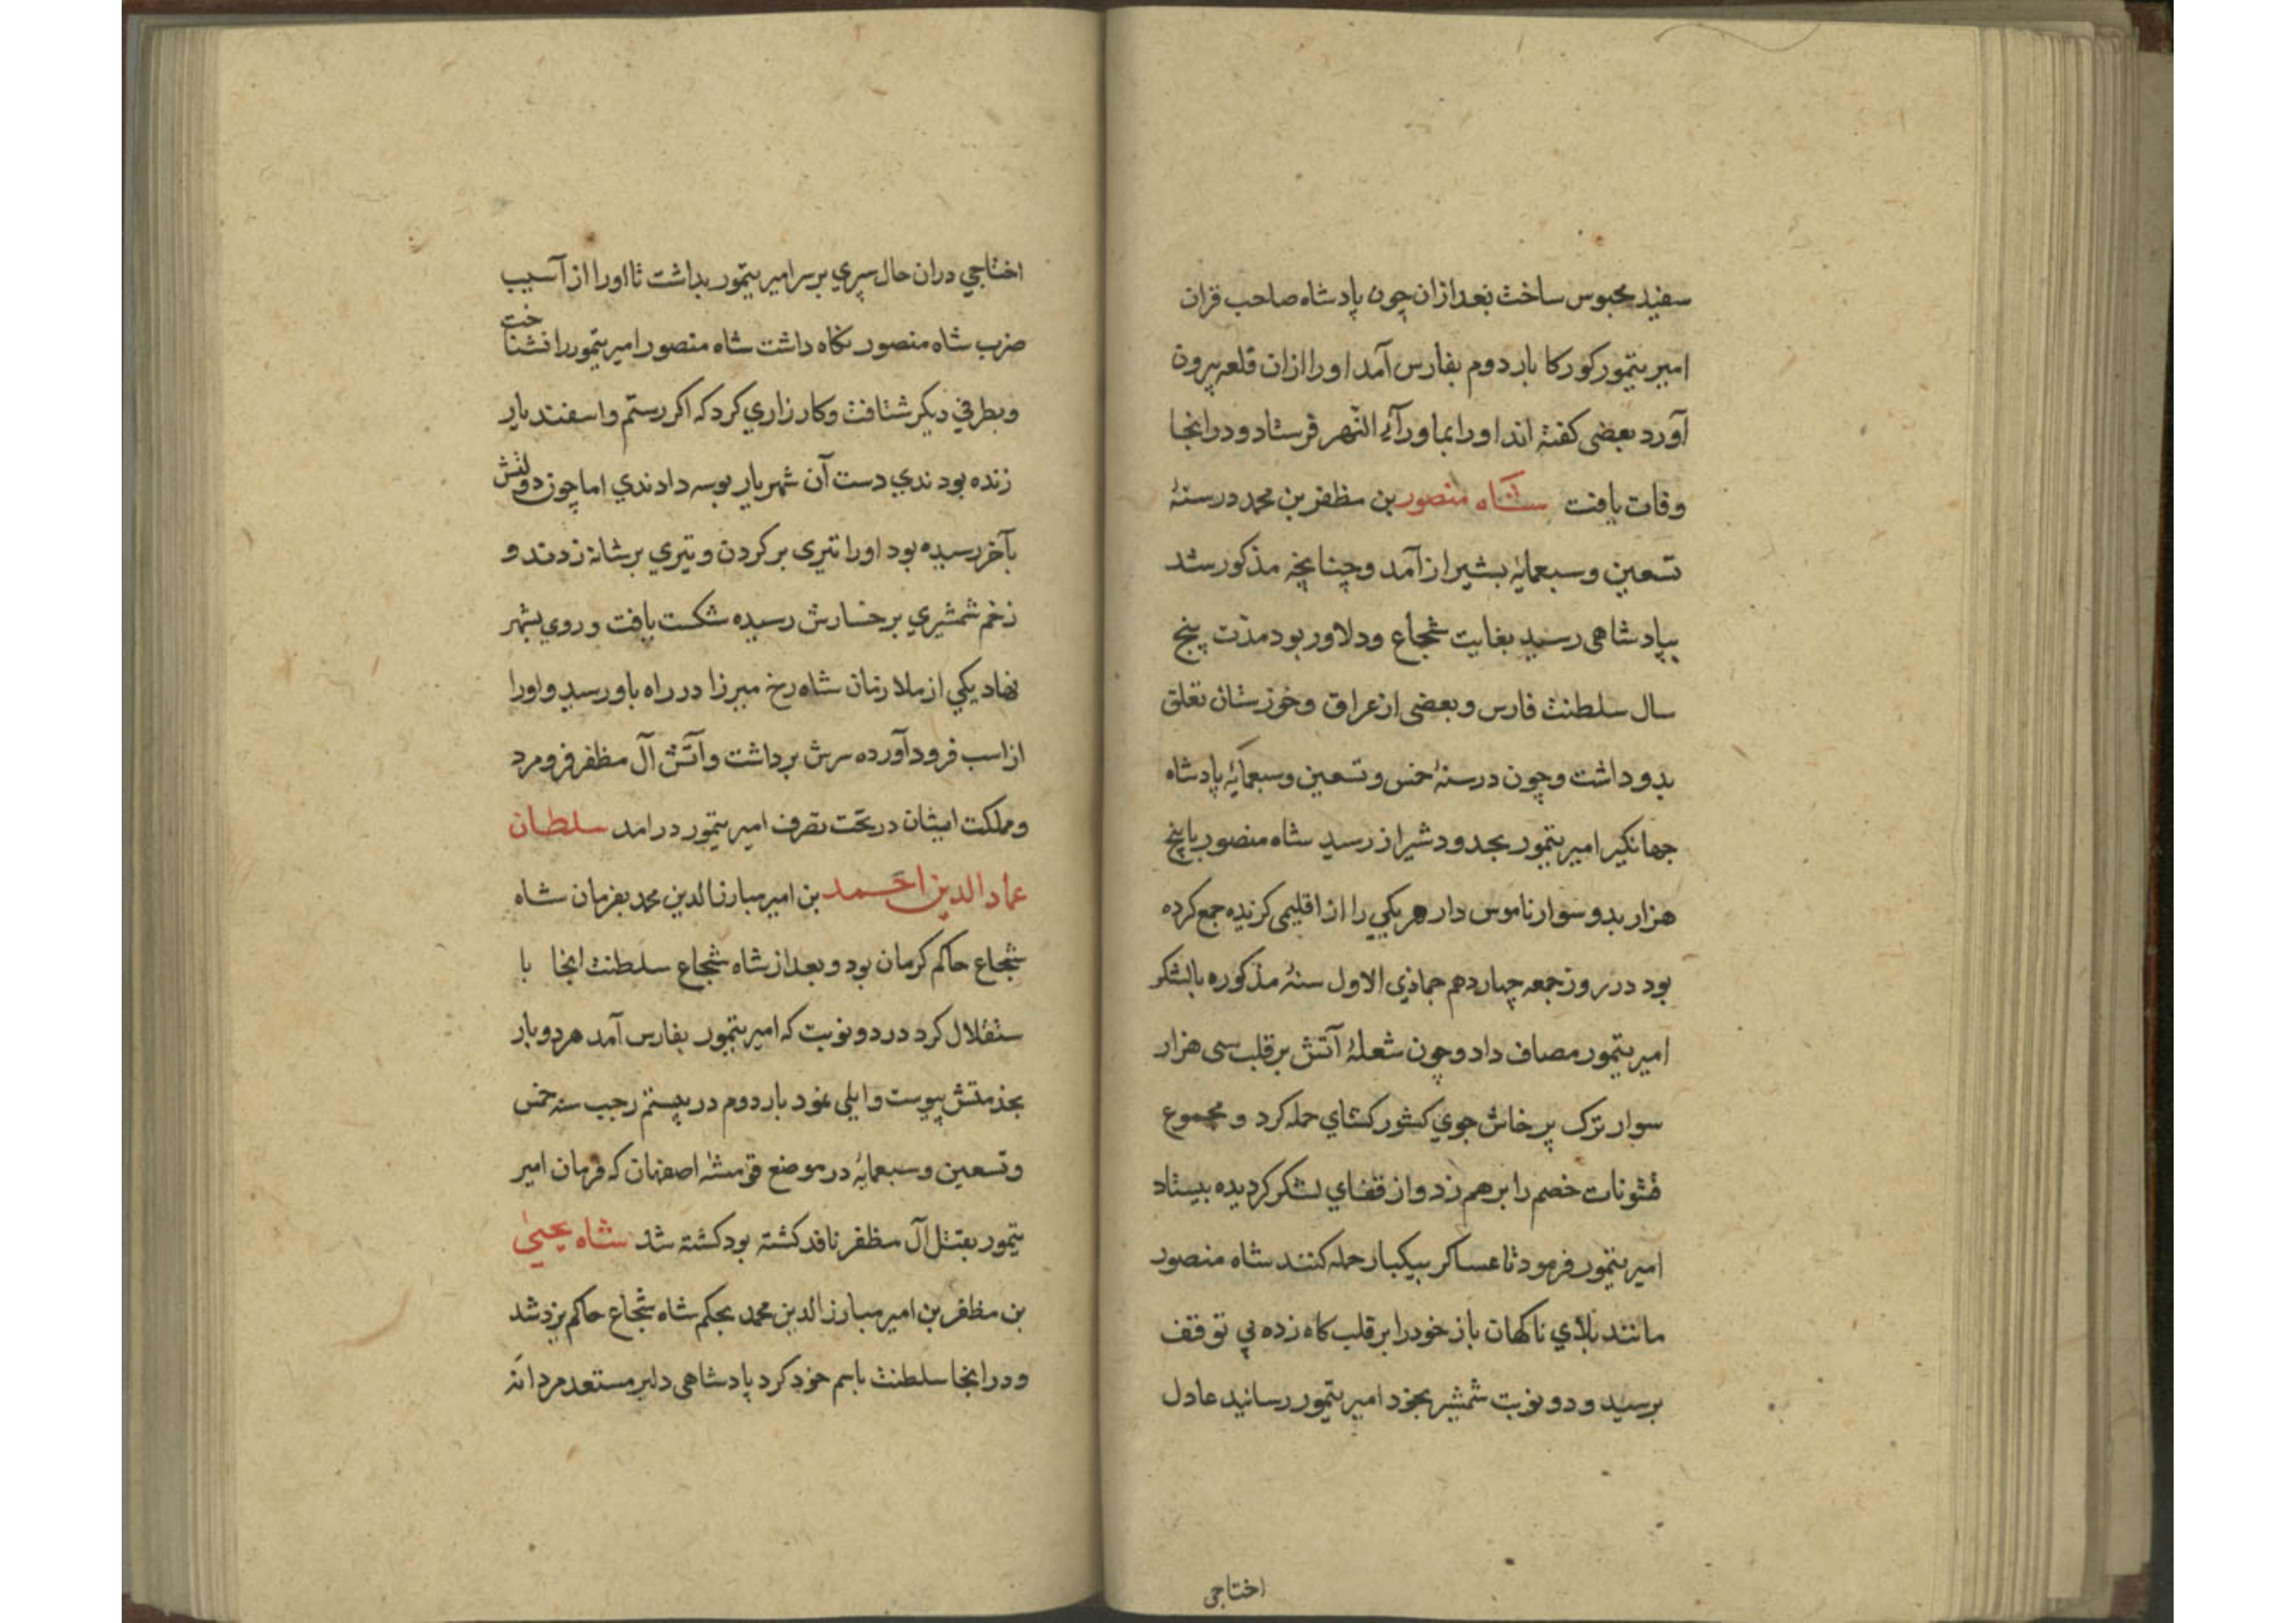 سفید محبوس ساخت بعد ازان چون پادشاه صاحب قران
امیر تیمور کورکا بار دوم بفارس آمد او را ازان قلعه بیرون
آورد بعضی کفته اند او را بماورآء النّهر فرستاد و در انجا
وفات یافت شاه منصور بن مظفر بن محمد در سنۀ
تسعین و سبعمایٔه بشیراز آمد و چنانچه مذکور شد
بپادشاهی رسید بغایت شجاع و دلاور بود مدّت پنج
سال سلطنت فارس و بعضی از عراق و خوزستان تعلق
بدو داشت و چون در سنۀ خمس و تسعین و سبعمایٔه پادشاه
جهانکیر امیر تیمور بحدود شیراز رسید شاه منصور با پنج
هزار بدو سوار ناموس دار هر یکی را از اقلیمی کزیده جمع کرده
بود در روز جمعه چهاردهم جماذی الاول سنۀ مذکوره با لشکر
امیر تیمور مصاف داد و چون شعلۀ آتش بر قلب سی هزار
سوار ترک پرخاش جوي کشور کشاي حمله کرد و مجموع
قشونات خصم را برهم زد و از قفاي لشکر کردیده بیستاد
امیر تیمور فرمود تا عساکر بیکبار حمله کنند شاه منصور
مانند بلاي ناکهان باز خود را بر قلب کاه زده بي توقف
برسید و دو نوبت شمشیر بخود امیر تیمور رسانید عادل
اختاجی
اختاجي دران حال سپري بر سر امیر تیمور بداشت تا او را از آسیب
ضرب شاه منصور نکاه داشت شاه منصور امیر تیمور را نشناخت
و بطرفي دیکر شتافت و کارزاري کرد که اکر رستم و اسفندیار
زنده بودندي دست آن شهریار بوسه دادندي اما چون دولتش
بآخر رسیده بود او را تیری بر کردن و تیري بر شانه زدند و
زخم شمشیري بر رخسارش رسیده شکست یافت و روي بشهر
نهاد یکي از ملازمان شاه رخ میرزا در راه باو رسید و او را
از اسب فرود آورده سرش برداشت و آتش آل مظفر فرو مرد
و مملکت ایشان در تحت تصرف امیر تیمور درامد سلطان
عماد الدین احمد بن امیر مبارز الدین محمد بفرمان شاه
شجاع حاکم کرمان بود و بعد از شاه شجاع سلطنت انجا با
ستقلال کرد در دو نوبت که امیر تیمور بفارس آمد هر دو بار
بخدمتش پیوست و ایلی نمود بار دوم در بیستم رجب سنه خمس
و تسعین و سبعمایٔه در موضع قومشۀ اصفهان که فرمان امیر
تیمور بقتل آل مظفر نافد کشته بود کشته شد شاه یحیی
بن مظفر بن امیر مبارز الدین محمد بحکم شاه شجاع حاکم یزد شد
و در انجا سلطنت باسم خود کرد پادشاهی دلیر مستعد مردانه